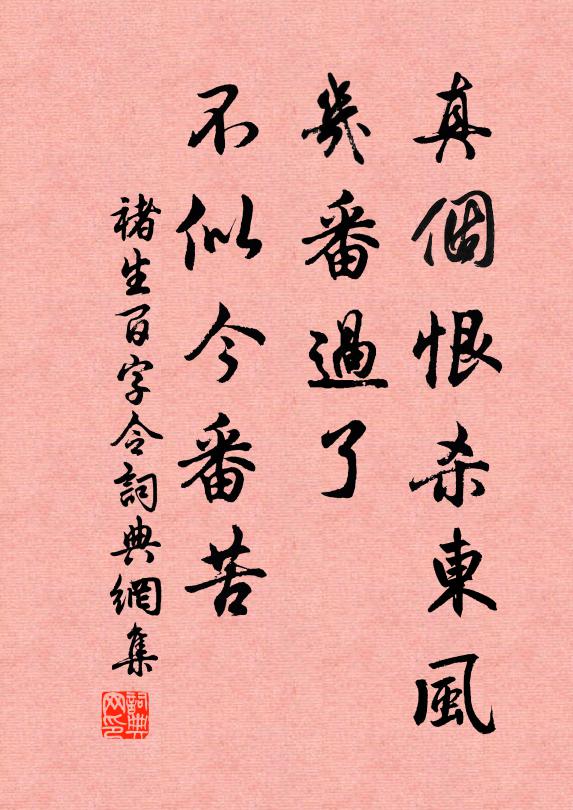 真個恨杀東風
幾番過了
不似今番苦
褚生百字令詞典網集
詞典网印